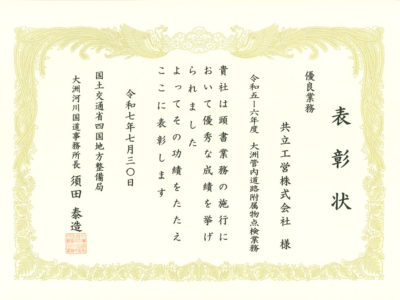 表彰状
優良業務
共立工営株式会社 様
令和五-六年度 大洲管内道路附属物点検業務
貴社は頭書業務の施行に
おいて優秀な成績を挙げ
られました
よってその功績をたたえ
ここに表彰します
令和七年七月三〇日
国土交通省四国地方整備局
大洲河川国道事務所長 須田 泰造